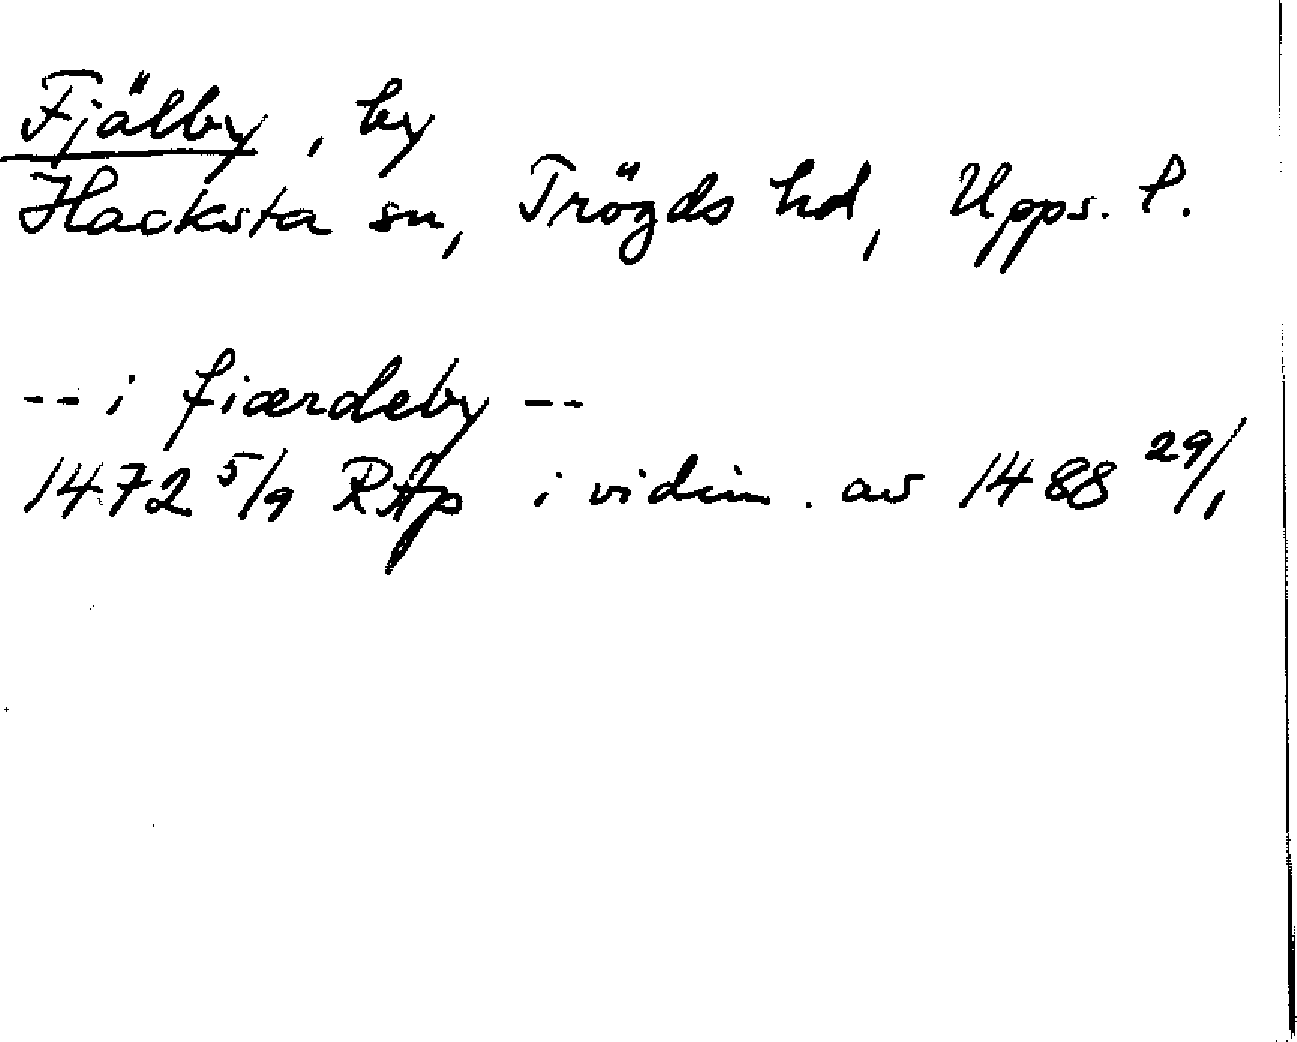 Fjälby, by
Hacksta sn, Trögds hd, Upps. l.
-- i fiærdeby --
1472 5/9 RAp i vidim. av 1488 29/1